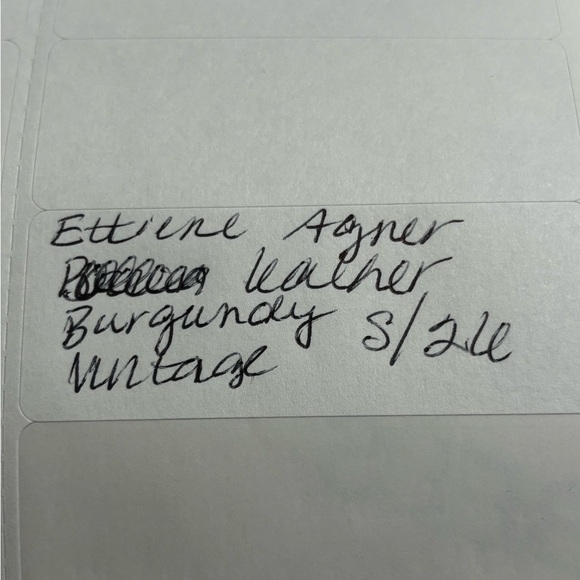 Ettiene Agner
leather
Burgundy S/26
Vintage